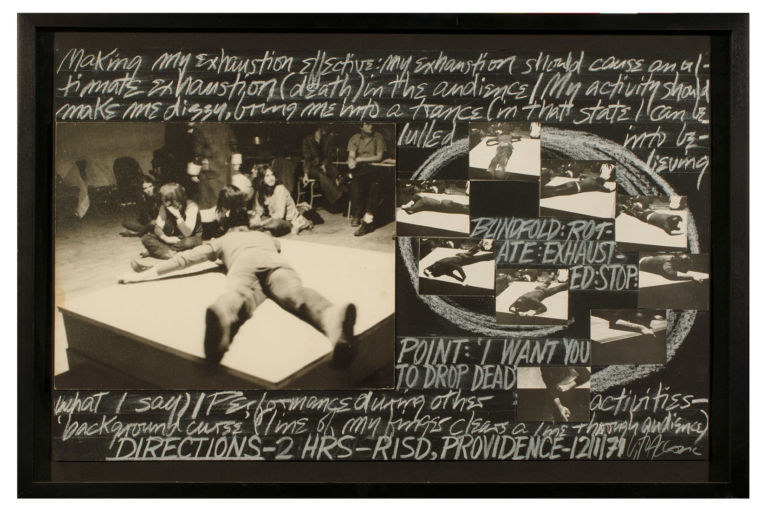 Making my exhaustion effective: my exhaustion should cause an ul-
timate exhaustion (death) in the audience / My activity should
make me dizzy, bring me into a trance (in that state I can be
lulled into be-
lieving
BLINDFOLD: ROT-
ATE: EXHAUST-
ED: STOP:
POINT: 'I WANT YOU
TO DROP DEAD'
what I say) / Performance during other activities–
'background curse' (line of my finger clears a line through audience)
'DIRECTIONS–2 HRS–RISD, PROVIDENCE–12/1/71